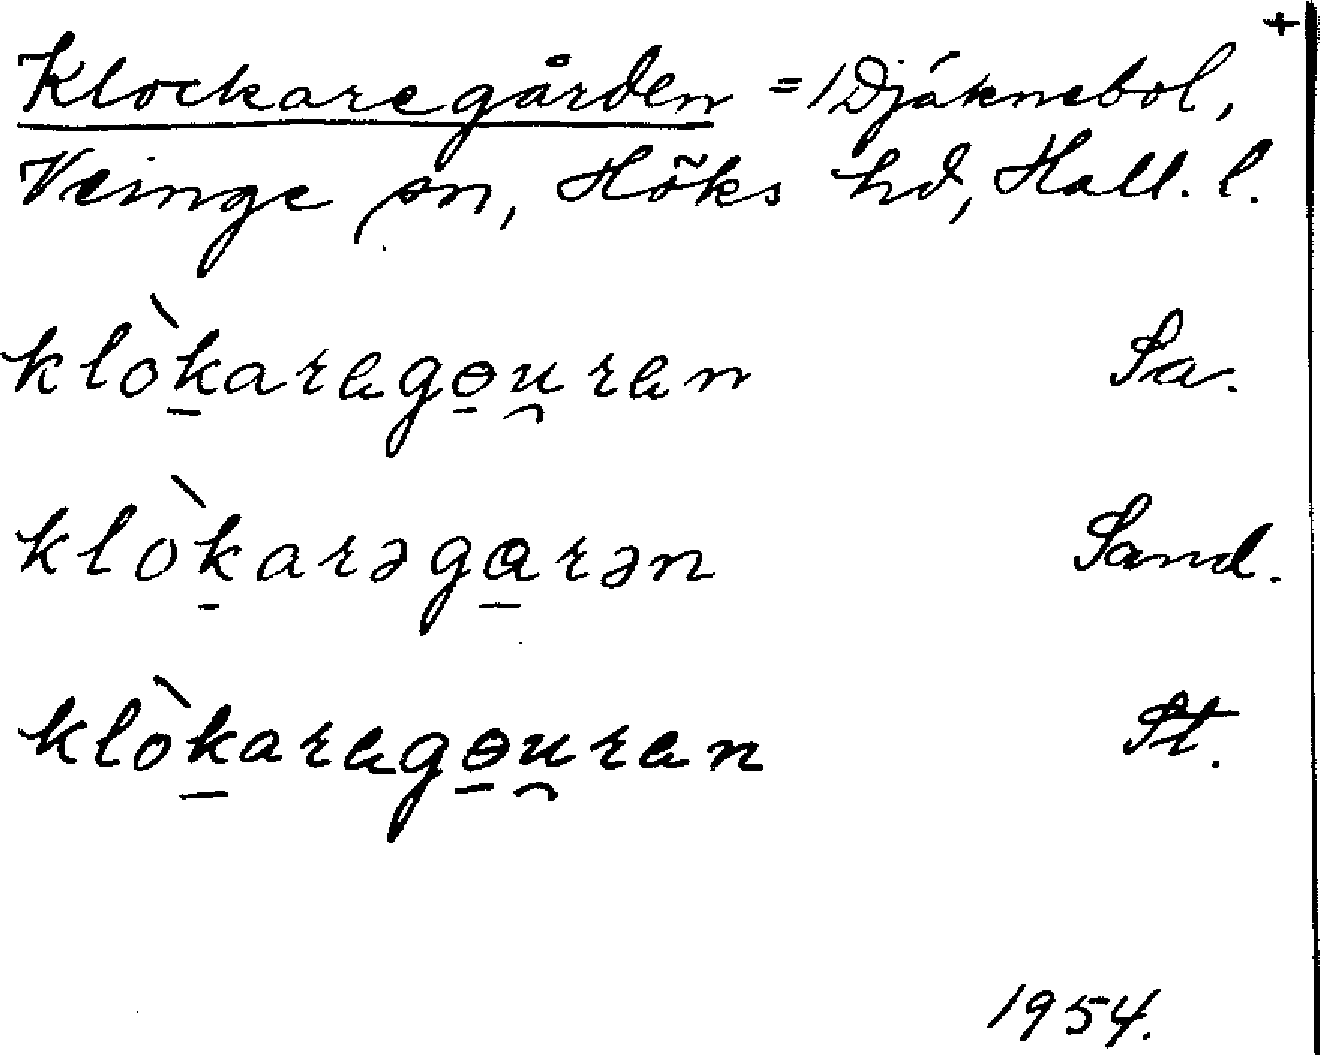 +
Klockaregården = 1 Djäknebol,
Veinge sn, Höks hd, Hall. l.
klòk̠arego̠u̯ren Sa.
klòk̠arəga̠rən Sand.
klòk̠arego̠u̯ren St.
1954.